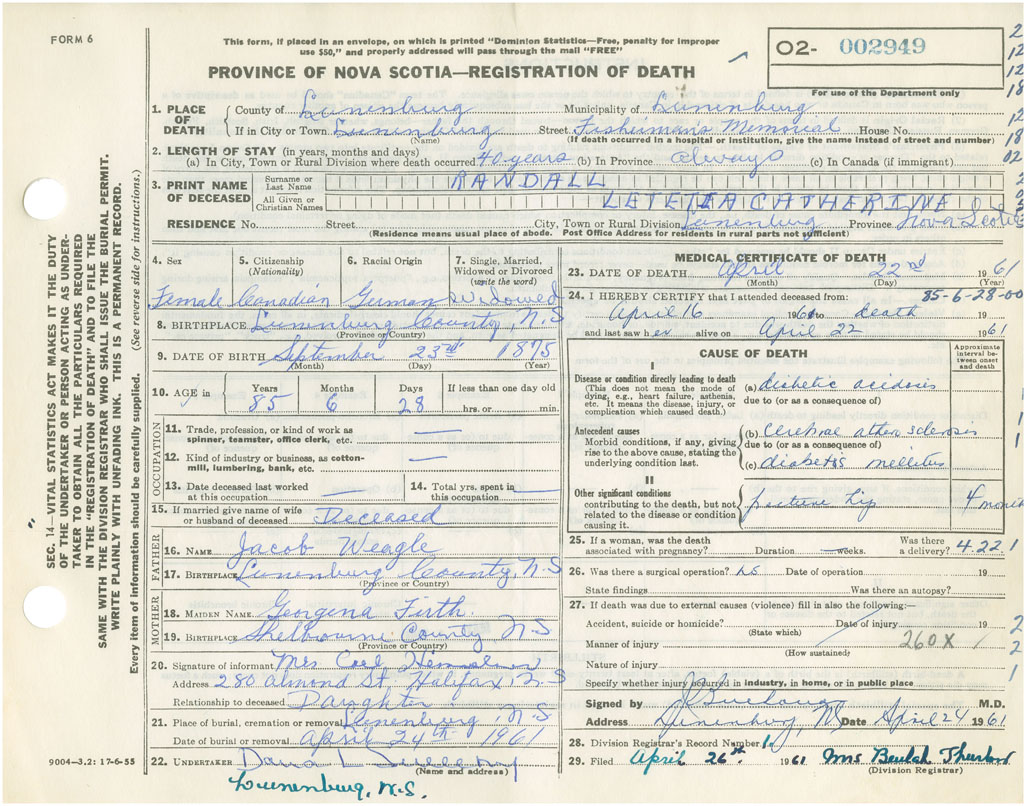 FORM 6
This form, if placed in an envelope, on which is printed "Dominion Statistics—Free, penalty for improper
use $50," and properly addressed will pass through the mail "FREE"
PROVINCE OF NOVA SCOTIA—REGISTRATION OF DEATH
02- 002949
For use of the Department only
1. PLACE OF DEATH
County of Lunenburg Municipality of Lunenburg
If in City or Town Lunenburg Street Fisherman's Memorial House No.
(Name) (If death occurred in a hospital or institution, give the name instead of street and number)
2. LENGTH OF STAY (in years, months and days)
(a) In City, Town or Rural Division where death occurred 40 years (b) In Province always (c) In Canada (if immigrant)
3. PRINT NAME OF DECEASED
Surname or Last Name RANDALL
All Given or Christian Names LETETIA CATHERINE
RESIDENCE No. Street City, Town or Rural Division Lunenburg Province Nova Scotia
(Residence means usual place of abode. Post Office Address for residents in rural parts not sufficient)
4. Sex Female
5. Citizenship (Nationality) Canadian
6. Racial Origin German
7. Single, Married, Widowed or Divorced (write the word) Widowed
8. BIRTHPLACE Lunenburg County, N.S
(Province or Country)
9. DATE OF BIRTH September 23rd 1875
(Month) (Day) (Year)
10. AGE in Years 85 Months 6 Days 28 If less than one day old hrs. or min.
OCCUPATION
11. Trade, profession, or kind of work as spinner, teamster, office clerk, etc. —
12. Kind of industry or business, as cotton-mill, lumbering, bank, etc. —
13. Date deceased last worked at this occupation — 14. Total yrs. spent in this occupation —
15. If married give name of wife or husband of deceased Deceased
FATHER
16. NAME Jacob Weagle
17. BIRTHPLACE Lunenburg County, N.S
(Province or Country)
MOTHER
18. MAIDEN NAME Georgena Firth
19. BIRTHPLACE Shelbourne County N.S
(Province or Country)
20. Signature of informant Mrs
Address 280 Almond St. Halifax, N.S
Relationship to deceased Daughter
21. Place of burial, cremation or removal Lunenburg, N.S
Date of burial or removal April 24th 1961
22. UNDERTAKER L
(Name and address)
Lunenburg, N.S.
9004—3.2: 17-6-55
MEDICAL CERTIFICATE OF DEATH
23. DATE OF DEATH April 22nd 1961
(Month) (Day) (Year)
24. I HEREBY CERTIFY that I attended deceased from: 85-6-28-00
April 16 1961 to death
and last saw her alive on April 22 1961
CAUSE OF DEATH
Approximate interval between onset and death
I
Disease or condition directly leading to death
(This does not mean the mode of dying, e.g., heart failure, asthenia, etc. It means the disease, injury, or complication which caused death.)
(a) diabetic acidosis
due to (or as a consequence of)
Antecedent causes
Morbid conditions, if any, giving rise to the above cause, stating the underlying condition last.
(b) Cerebral
due to (or as a consequence of)
(c) diabetes mellitus
II
Other significant conditions
contributing to the death, but not related to the disease or condition causing it.
fracture hip 4 months
25. If a woman, was the death associated with pregnancy? Duration — weeks. Was there a delivery? 4.22.1
26. Was there a surgical operation? Date of operation 19
State findings Was there an autopsy?
27. If death was due to external causes (violence) fill in also the following:—
Accident, suicide or homicide? Date of injury 19
(State which)
Manner of injury 260X
(How sustained)
Nature of injury
Specify whether injury occurred in industry, in home, or in public place
Signed by M.D.
Address Lunenburg, NS Date April 24 1961
28. Division Registrar's Record Number
29. Filed April 26th 1961 Mrs Beulah
(Division Registrar)
SEC. 14—VITAL STATISTICS ACT MAKES IT THE DUTY
OF THE UNDERTAKER OR PERSON ACTING AS UNDER-
TAKER TO OBTAIN ALL THE PARTICULARS REQUIRED
IN THE "REGISTRATION OF DEATH" AND TO FILE THE
SAME WITH THE DIVISION REGISTRAR WHO SHALL ISSUE THE BURIAL PERMIT.
WRITE PLAINLY WITH UNFADING INK. THIS IS A PERMANENT RECORD.
Every item of information should be carefully supplied. (See reverse side for instructions.)
2
12
12
18
12
18
02
2
1
1
1
2
2
1